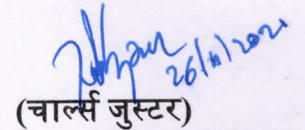 26/11/2020
(चार्ल्स जुस्टर)